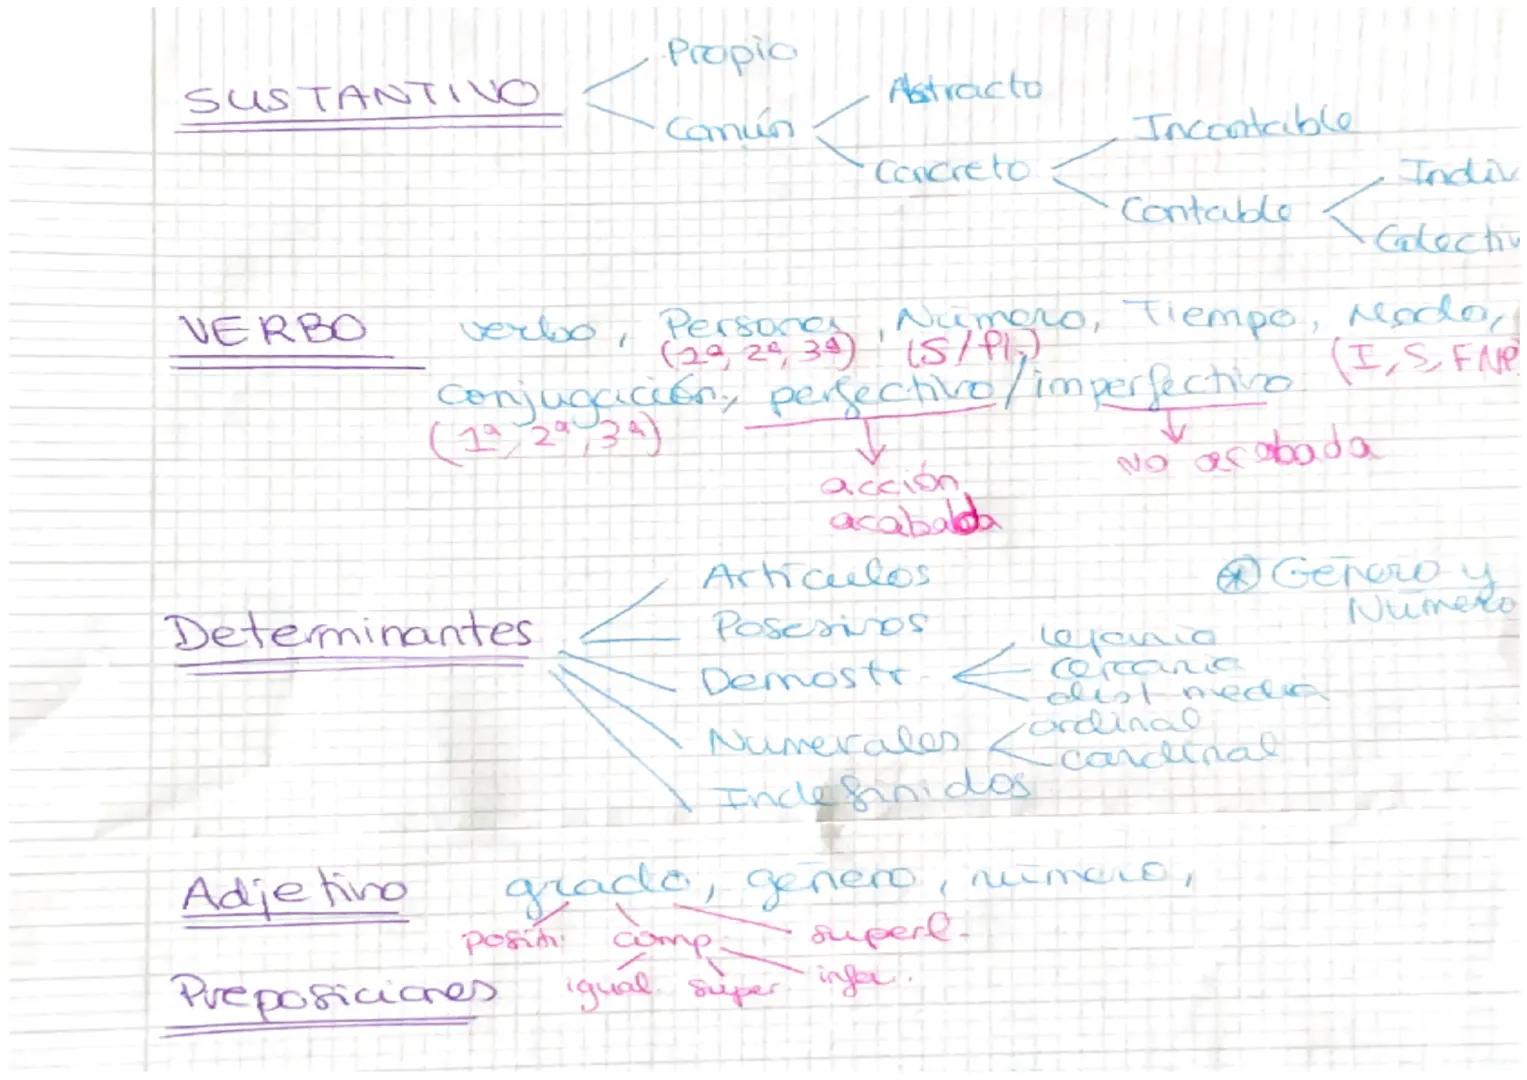 SUSTANTIVO
Propio
Común
Abstracto
Concreto
Incontable
Contable
Indiv
Colectiv
VERBO verbo, Persona, Número, Tiempo, Modo,
(1ª, 2ª, 3ª) (S/Pl.) (I, S, FNP
conjugación, perfectivo/imperfectivo
(1ª, 2ª, 3ª)
acción
acabada
No acabada
Determinantes
Artículos
Posesivos
Demostr.
lejanía
cercanía
dist media
Numerales
ordinal
cardinal
Indefinidos
* Género y
Número
Adjetivo grado, género, número,
posit. comp. superl.
igual. super infer.
Preposiciones